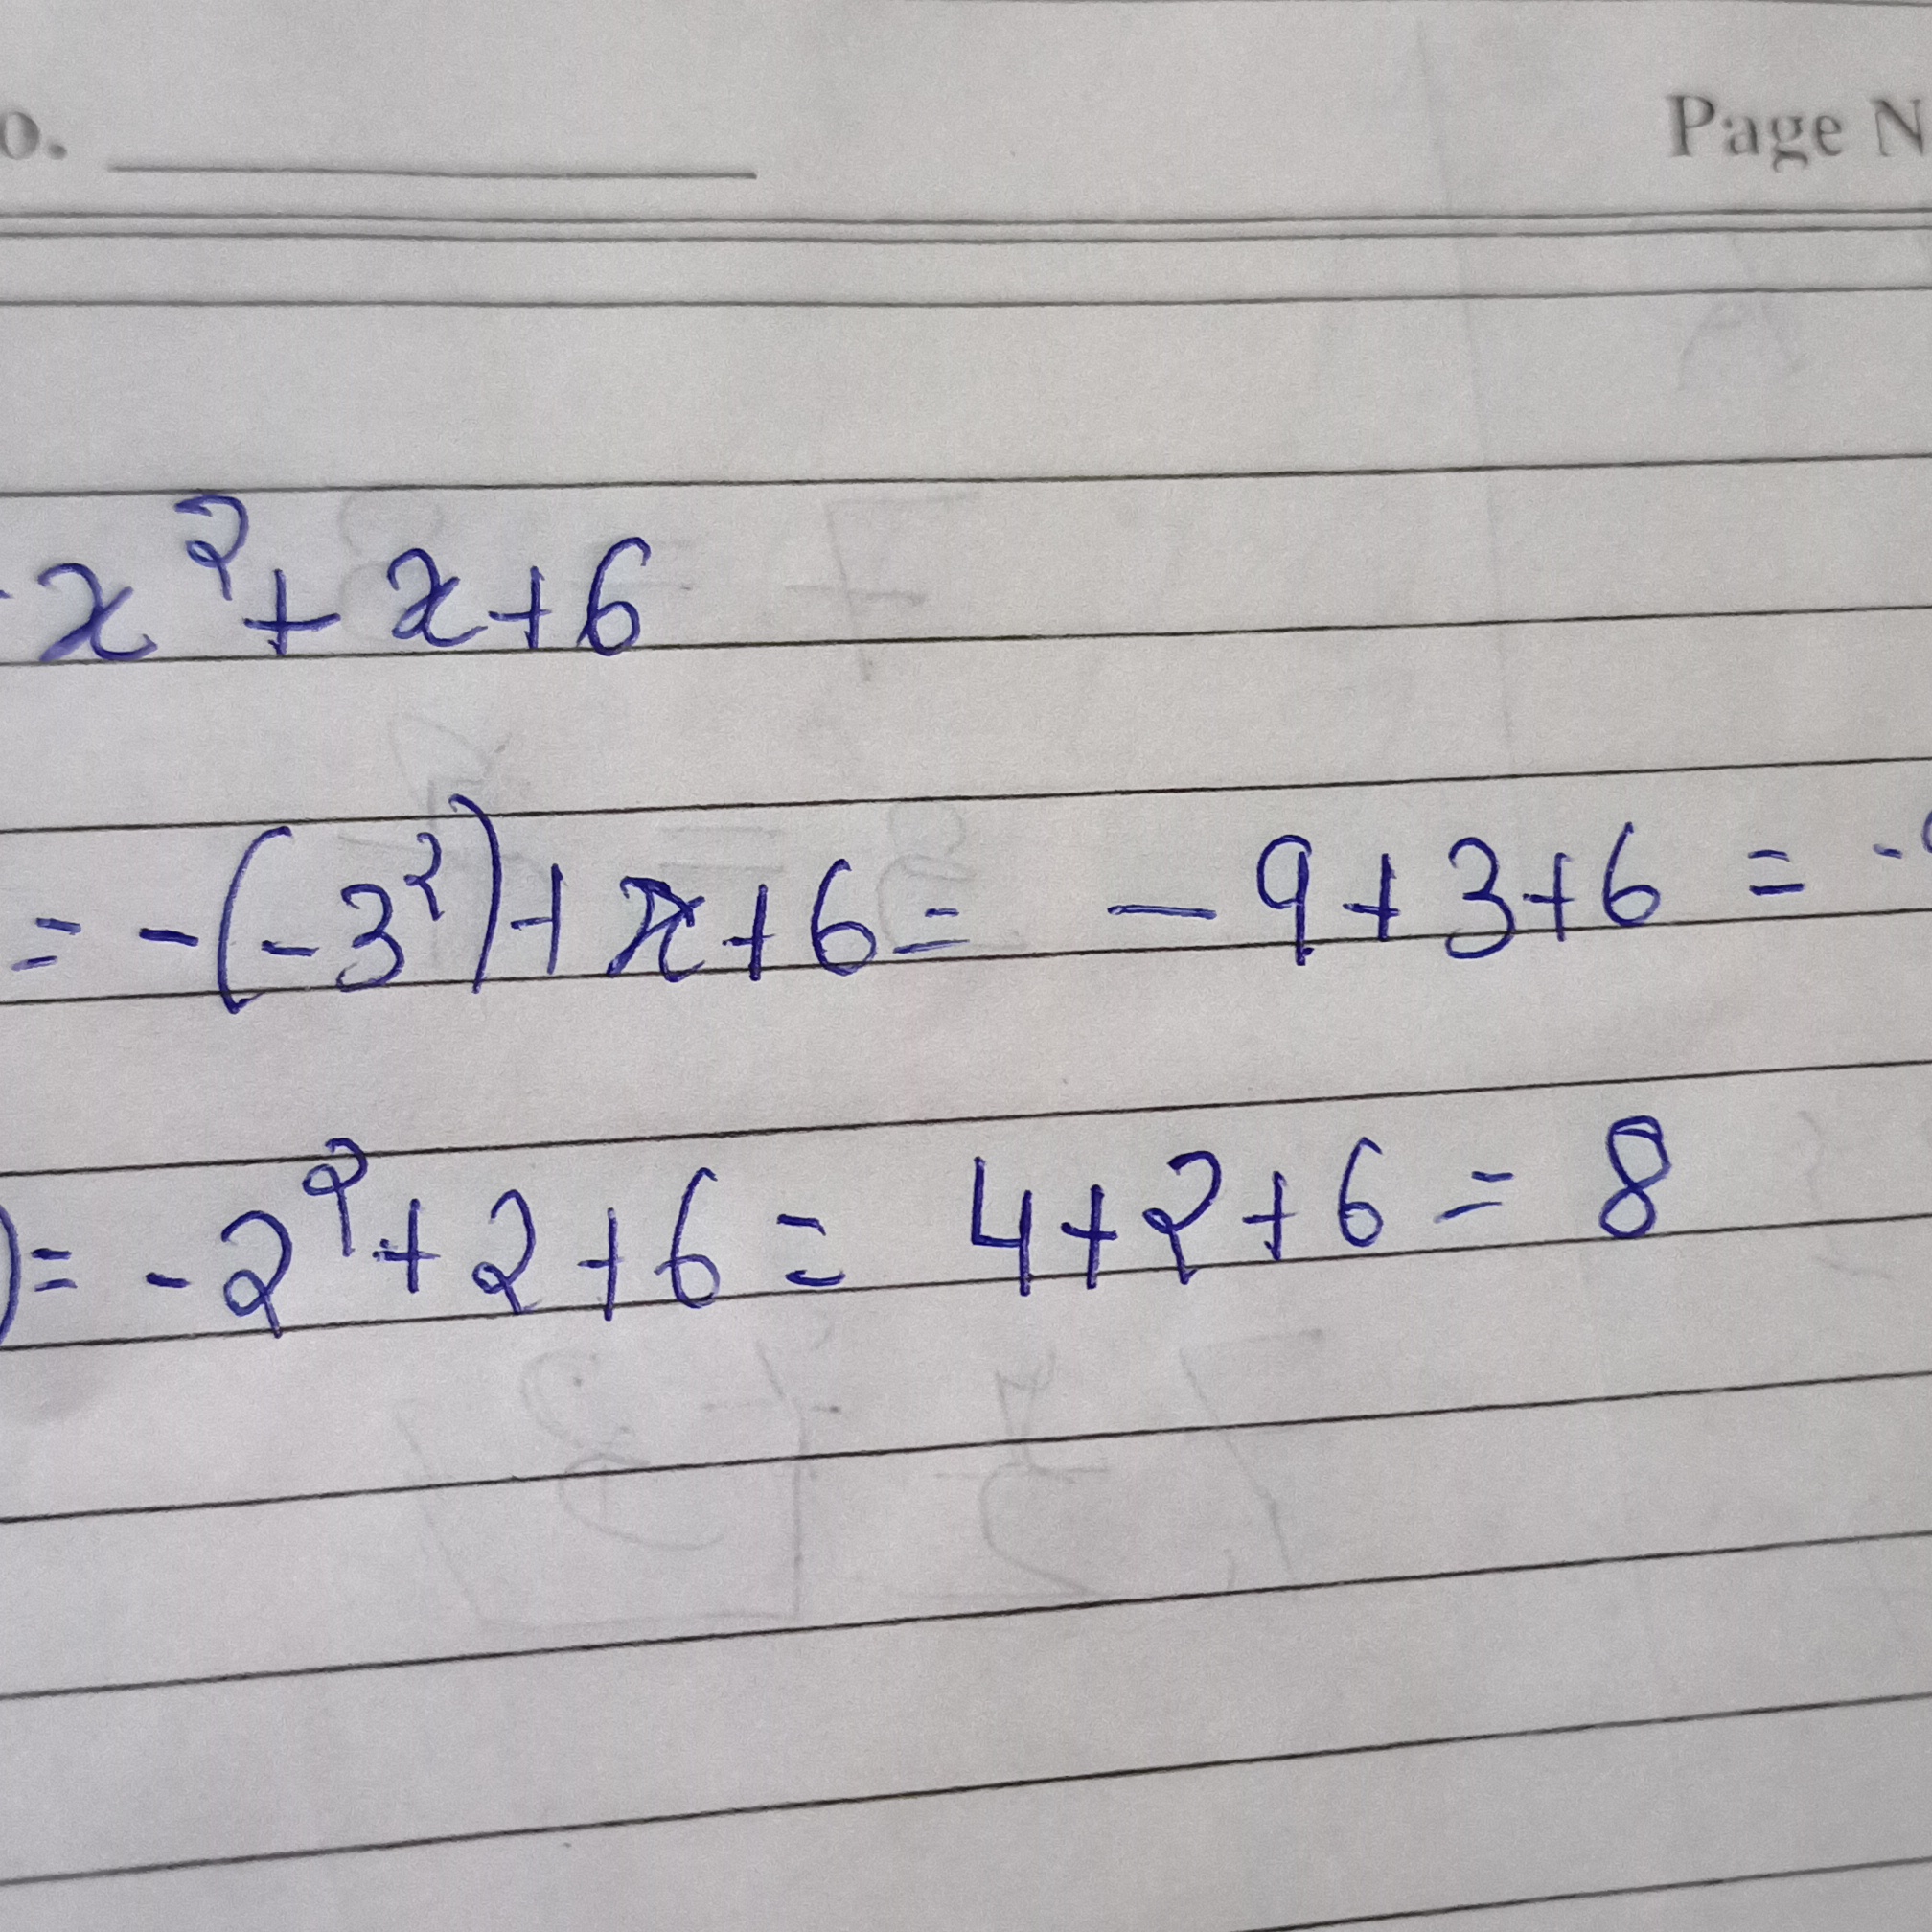 o. Page N
-x²+x+6
= -(-3²)+x+6= -9+3+6 = -
)= -2²+2+6= 4+2+6= 8